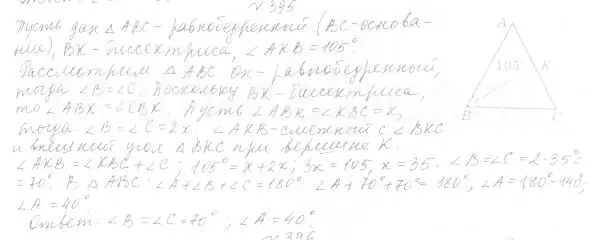 №395
Пусть дан △ABC - равнобедренный (BC - основа-
ние), BK - биссектриса, ∠AKB = 105°.
Рассмотрим △ABC. Он - равнобедренный,
тогда ∠B = ∠C. Поскольку BK - биссектриса,
то ∠ABK = ∠CBK. Пусть ∠ABK = ∠KBC = x,
тогда ∠B = ∠C = 2x. ∠AKB - смежный с ∠BKC
и внешний угол △BKC при вершине K.
∠AKB = ∠KBC + ∠C; 105° = x + 2x; 3x = 105, x = 35. ∠B = ∠C = 2·35° =
= 70°. В △ABC: ∠A + ∠B + ∠C = 180° ∠A + 70° + 70° = 180°, ∠A = 180° - 140°,
∠A = 40°.
Ответ: ∠B = ∠C = 70°; ∠A = 40°.
№396
A
105
K
B
C